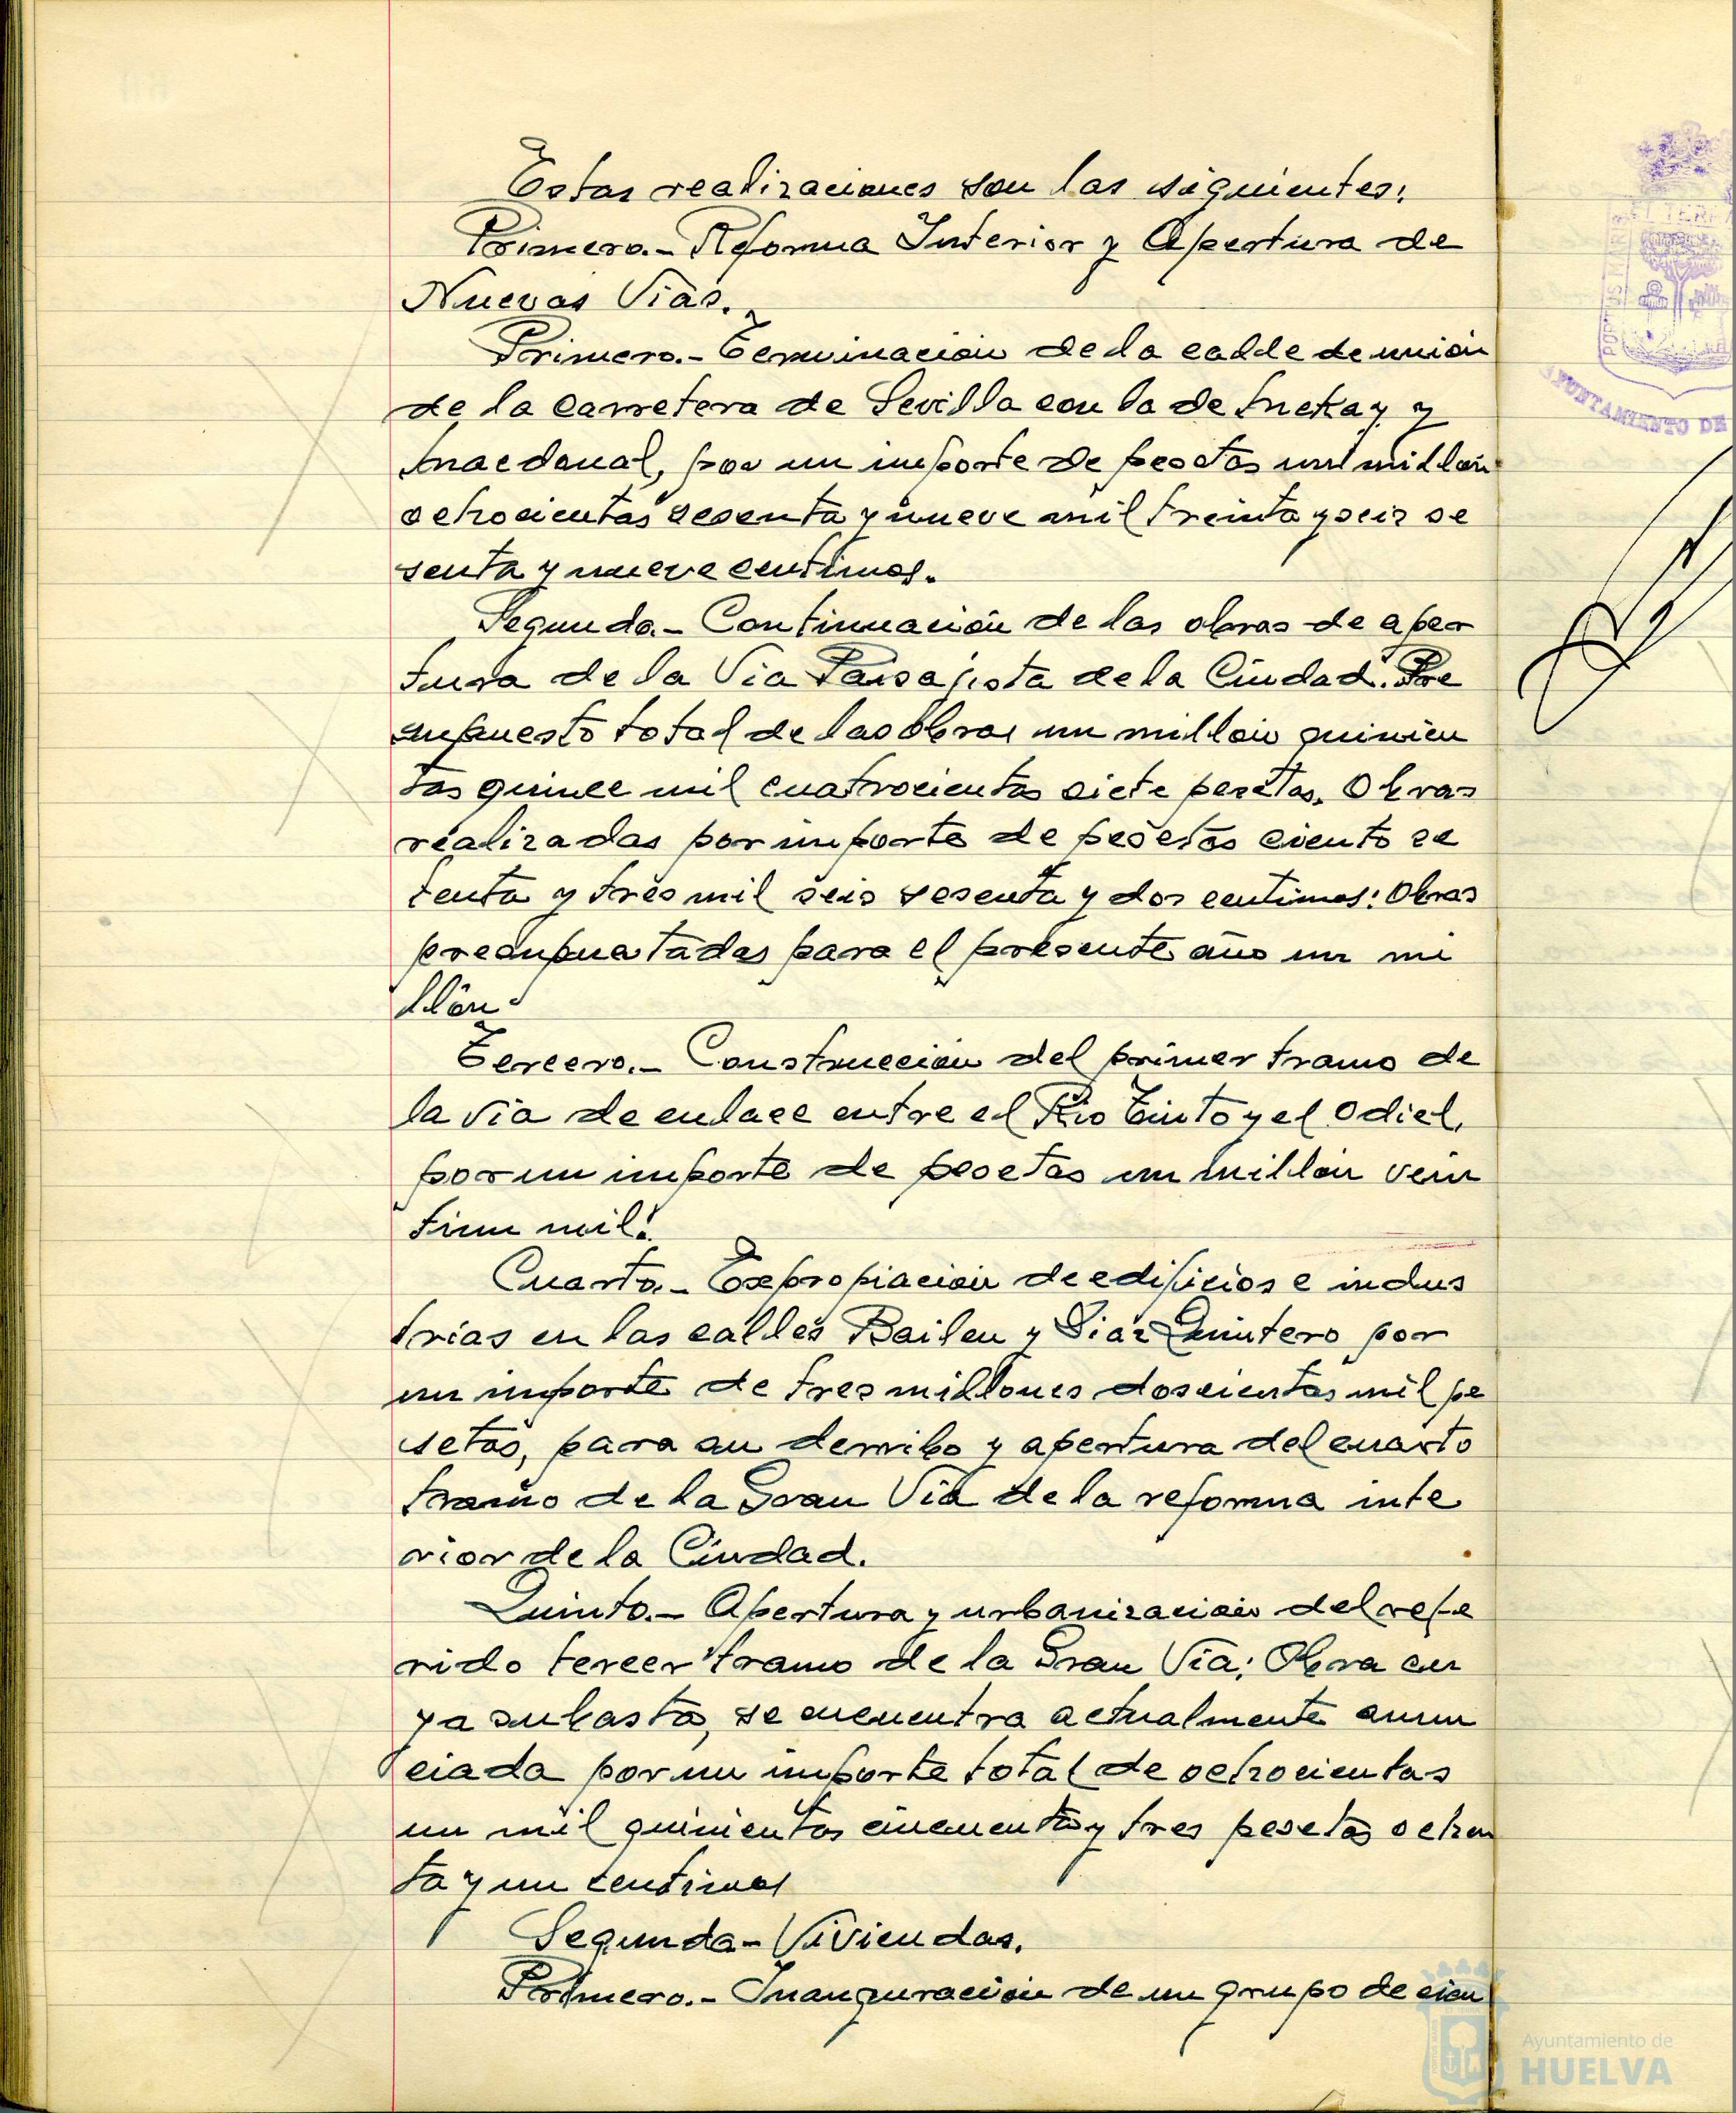 Estas realizaciones son las siguientes:
Primero.- Reforma Interior y Apertura de
Nuevas Vias.
Primero.- Terminación de la calle de unión
de la carretera de Sevilla con la de y
por un importe de pesetas un millón
ochocientas sesenta y nueve mil treinta y seis se
senta y nueve centimos.
Segundo.- Continuación de las obras de aper
tura de la Via Paisajista de la Ciudad. Pre
supuesto total de las obras un millón quinien
tas quince mil cuatrocientas siete pesetas. Obras
realizadas por importe de pesetas ciento se
tenta y tres mil seis sesenta y dos centimos: Obras
presupuestadas para el presente año un mi
llón.
Tercero.- Construcción del primer tramo de
la via de enlace entre el Rio Tinto y el Odiel,
por un importe de pesetas un millón vein
tiun mil.
Cuarto.- Expropiación de edificios e indus
trias en las calles Bailen y Diaz Quintero por
un importe de tres millones doscientas mil pe
setas, para su derribo y apertura del cuarto
tramo de la Gran Via de la reforma inte
rior de la Ciudad.
Quinto.- Apertura y urbanización del refe
rido tercer tramo de la Gran Via; Obra cu
ya subasta, se encuentra actualmente anun
ciada por un importe total de ochocientas
un mil quinientas cincuenta y tres pesetas ochen
ta y un centimos
Segunda- Viviendas.
Primero.- Inauguración de un grupo de cien
AYUNTAMIENTO DE
Ayuntamiento de
HUELVA